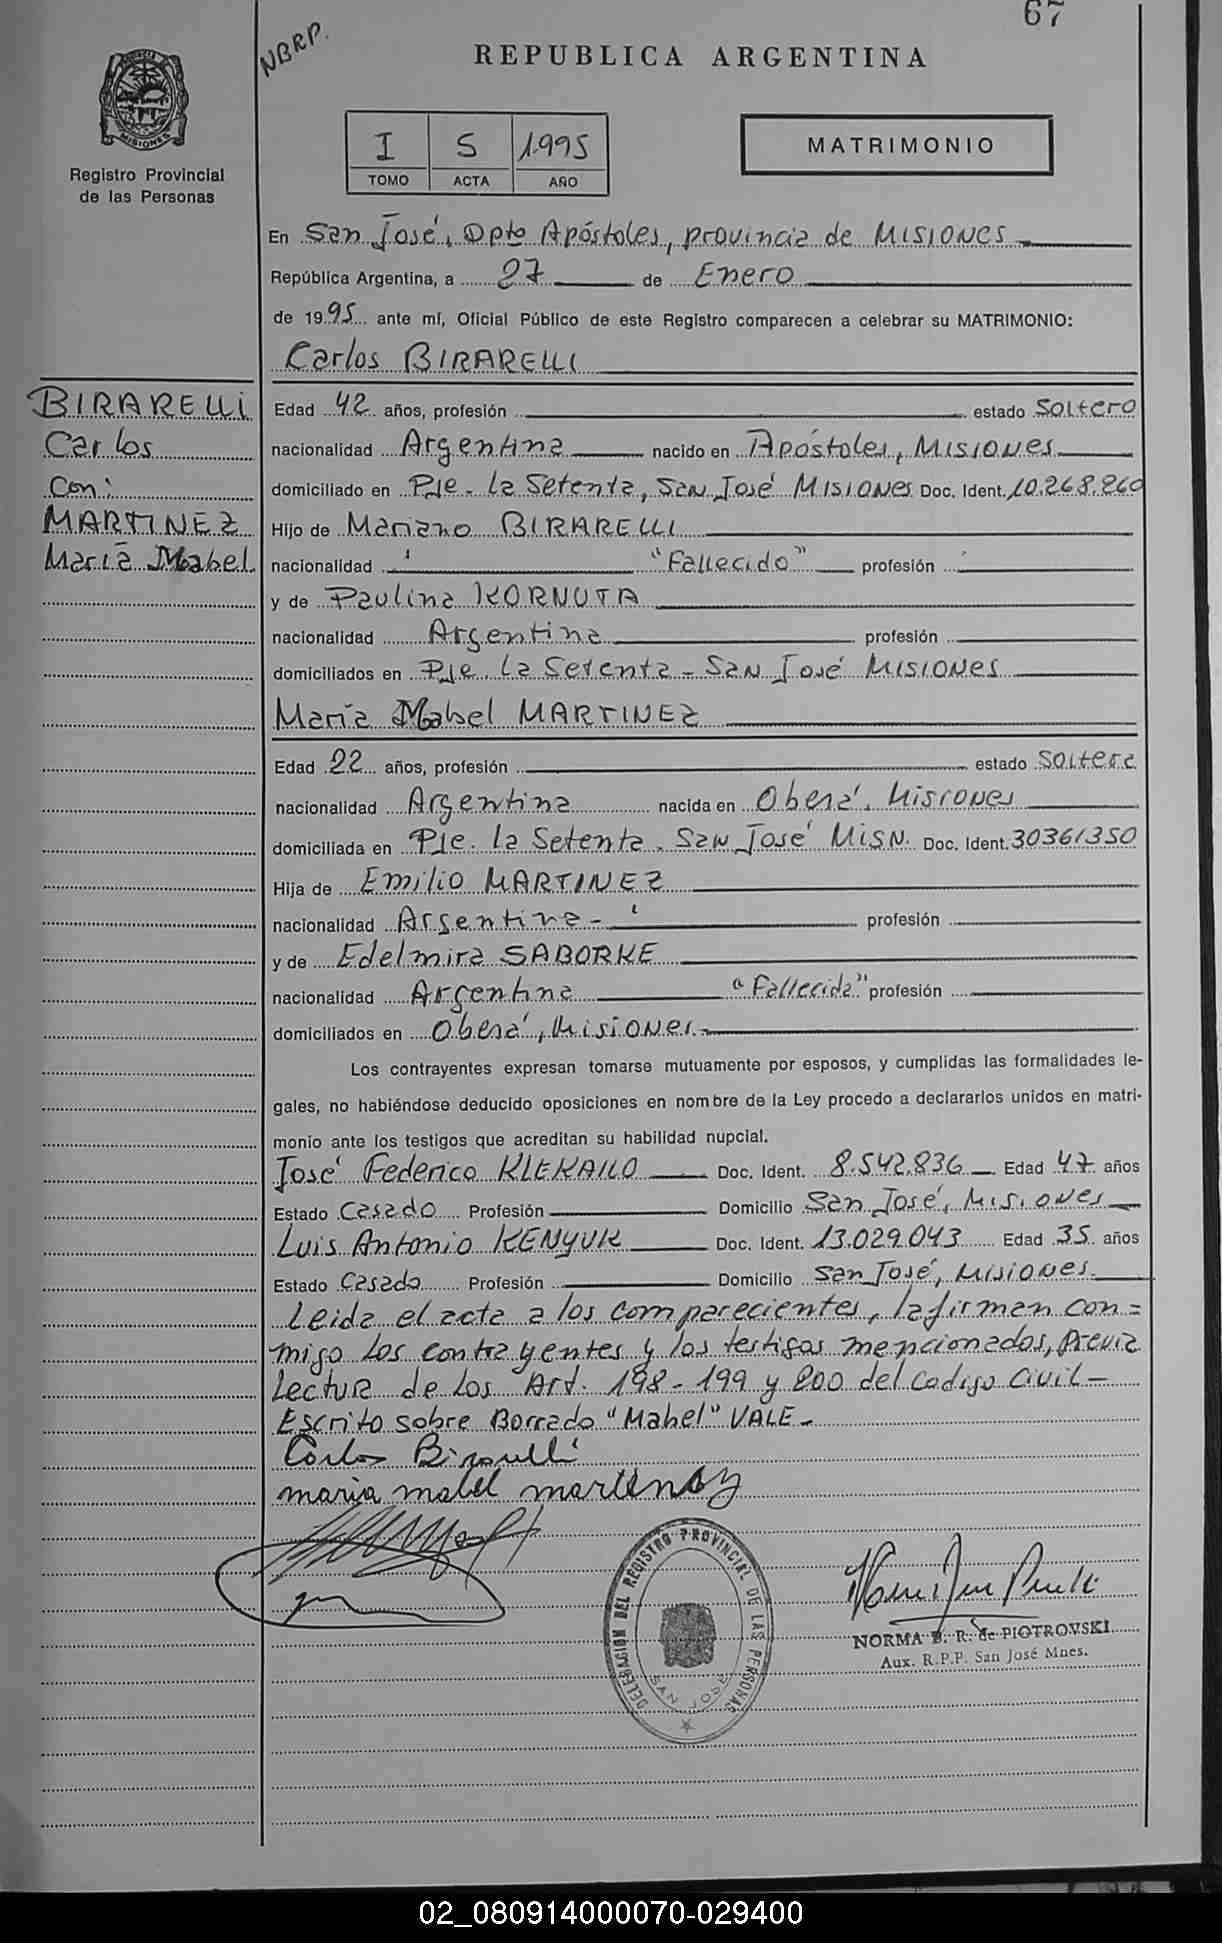 67
NBRP.
REPUBLICA ARGENTINA
PROVINCIA DE MISIONES
Registro Provincial
de las Personas
I 5 1995
TOMO ACTA AÑO
MATRIMONIO
En San José, Dpto Apóstoles, provincia de MISIONES
República Argentina, a 27 de Enero
de 1995 ante mí, Oficial Público de este Registro comparecen a celebrar su MATRIMONIO:
Carlos BIRARELLI
BIRARELLI
Carlos
Con:
MARTINEZ
María Mabel
Edad 42 años, profesión estado Soltero
nacionalidad Argentina nacido en Apóstoles, MISIONES
domiciliado en Pje. La Setenta, San José MISIONES Doc. Ident. 10.268.260
Hijo de Mariano BIRARELLI
nacionalidad "Fallecido" profesión
y de Paulina KORNUTA
nacionalidad Argentina profesión
domiciliados en Pje. La Setenta - San José MISIONES
María Mabel MARTINEZ
Edad 22 años, profesión estado Soltera
nacionalidad Argentina nacida en Oberá, Misiones
domiciliada en Pje. La Setenta, San José MISN. Doc. Ident. 30361350
Hija de Emilio MARTINEZ
nacionalidad Argentina - profesión
y de Edelmira SABORKE
nacionalidad Argentina "Fallecida" profesión
domiciliados en Oberá, Misiones.-
Los contrayentes expresan tomarse mutuamente por esposos, y cumplidas las formalidades le-
gales, no habiéndose deducido oposiciones en nombre de la Ley procedo a declararlos unidos en matri-
monio ante los testigos que acreditan su habilidad nupcial.
José Federico KLEKAILO Doc. Ident. 8.542.836 Edad 47 años
Estado Casado Profesión Domicilio San José, Misiones
Luis Antonio KENYUK Doc. Ident. 13.029.043 Edad 35 años
Estado Casado Profesión Domicilio San José, Misiones.
Leida el acta a los comparecientes, la firman con=
migo los contrayentes y los testigos mencionados, previa
Lectura de los Art. 198-199 y 200 del Codigo Civil-
Escrito sobre Borrado "Mabel" VALE-
Carlos Birarelli
maria mabel martinez
DELEGACION DEL REGISTRO PROVINCIAL DE LAS PERSONAS
SAN JOSE
NORMA B. R. de PIOTROVSKI
Aux. R.P.P. San José Mnes.
02_080914000070-029400